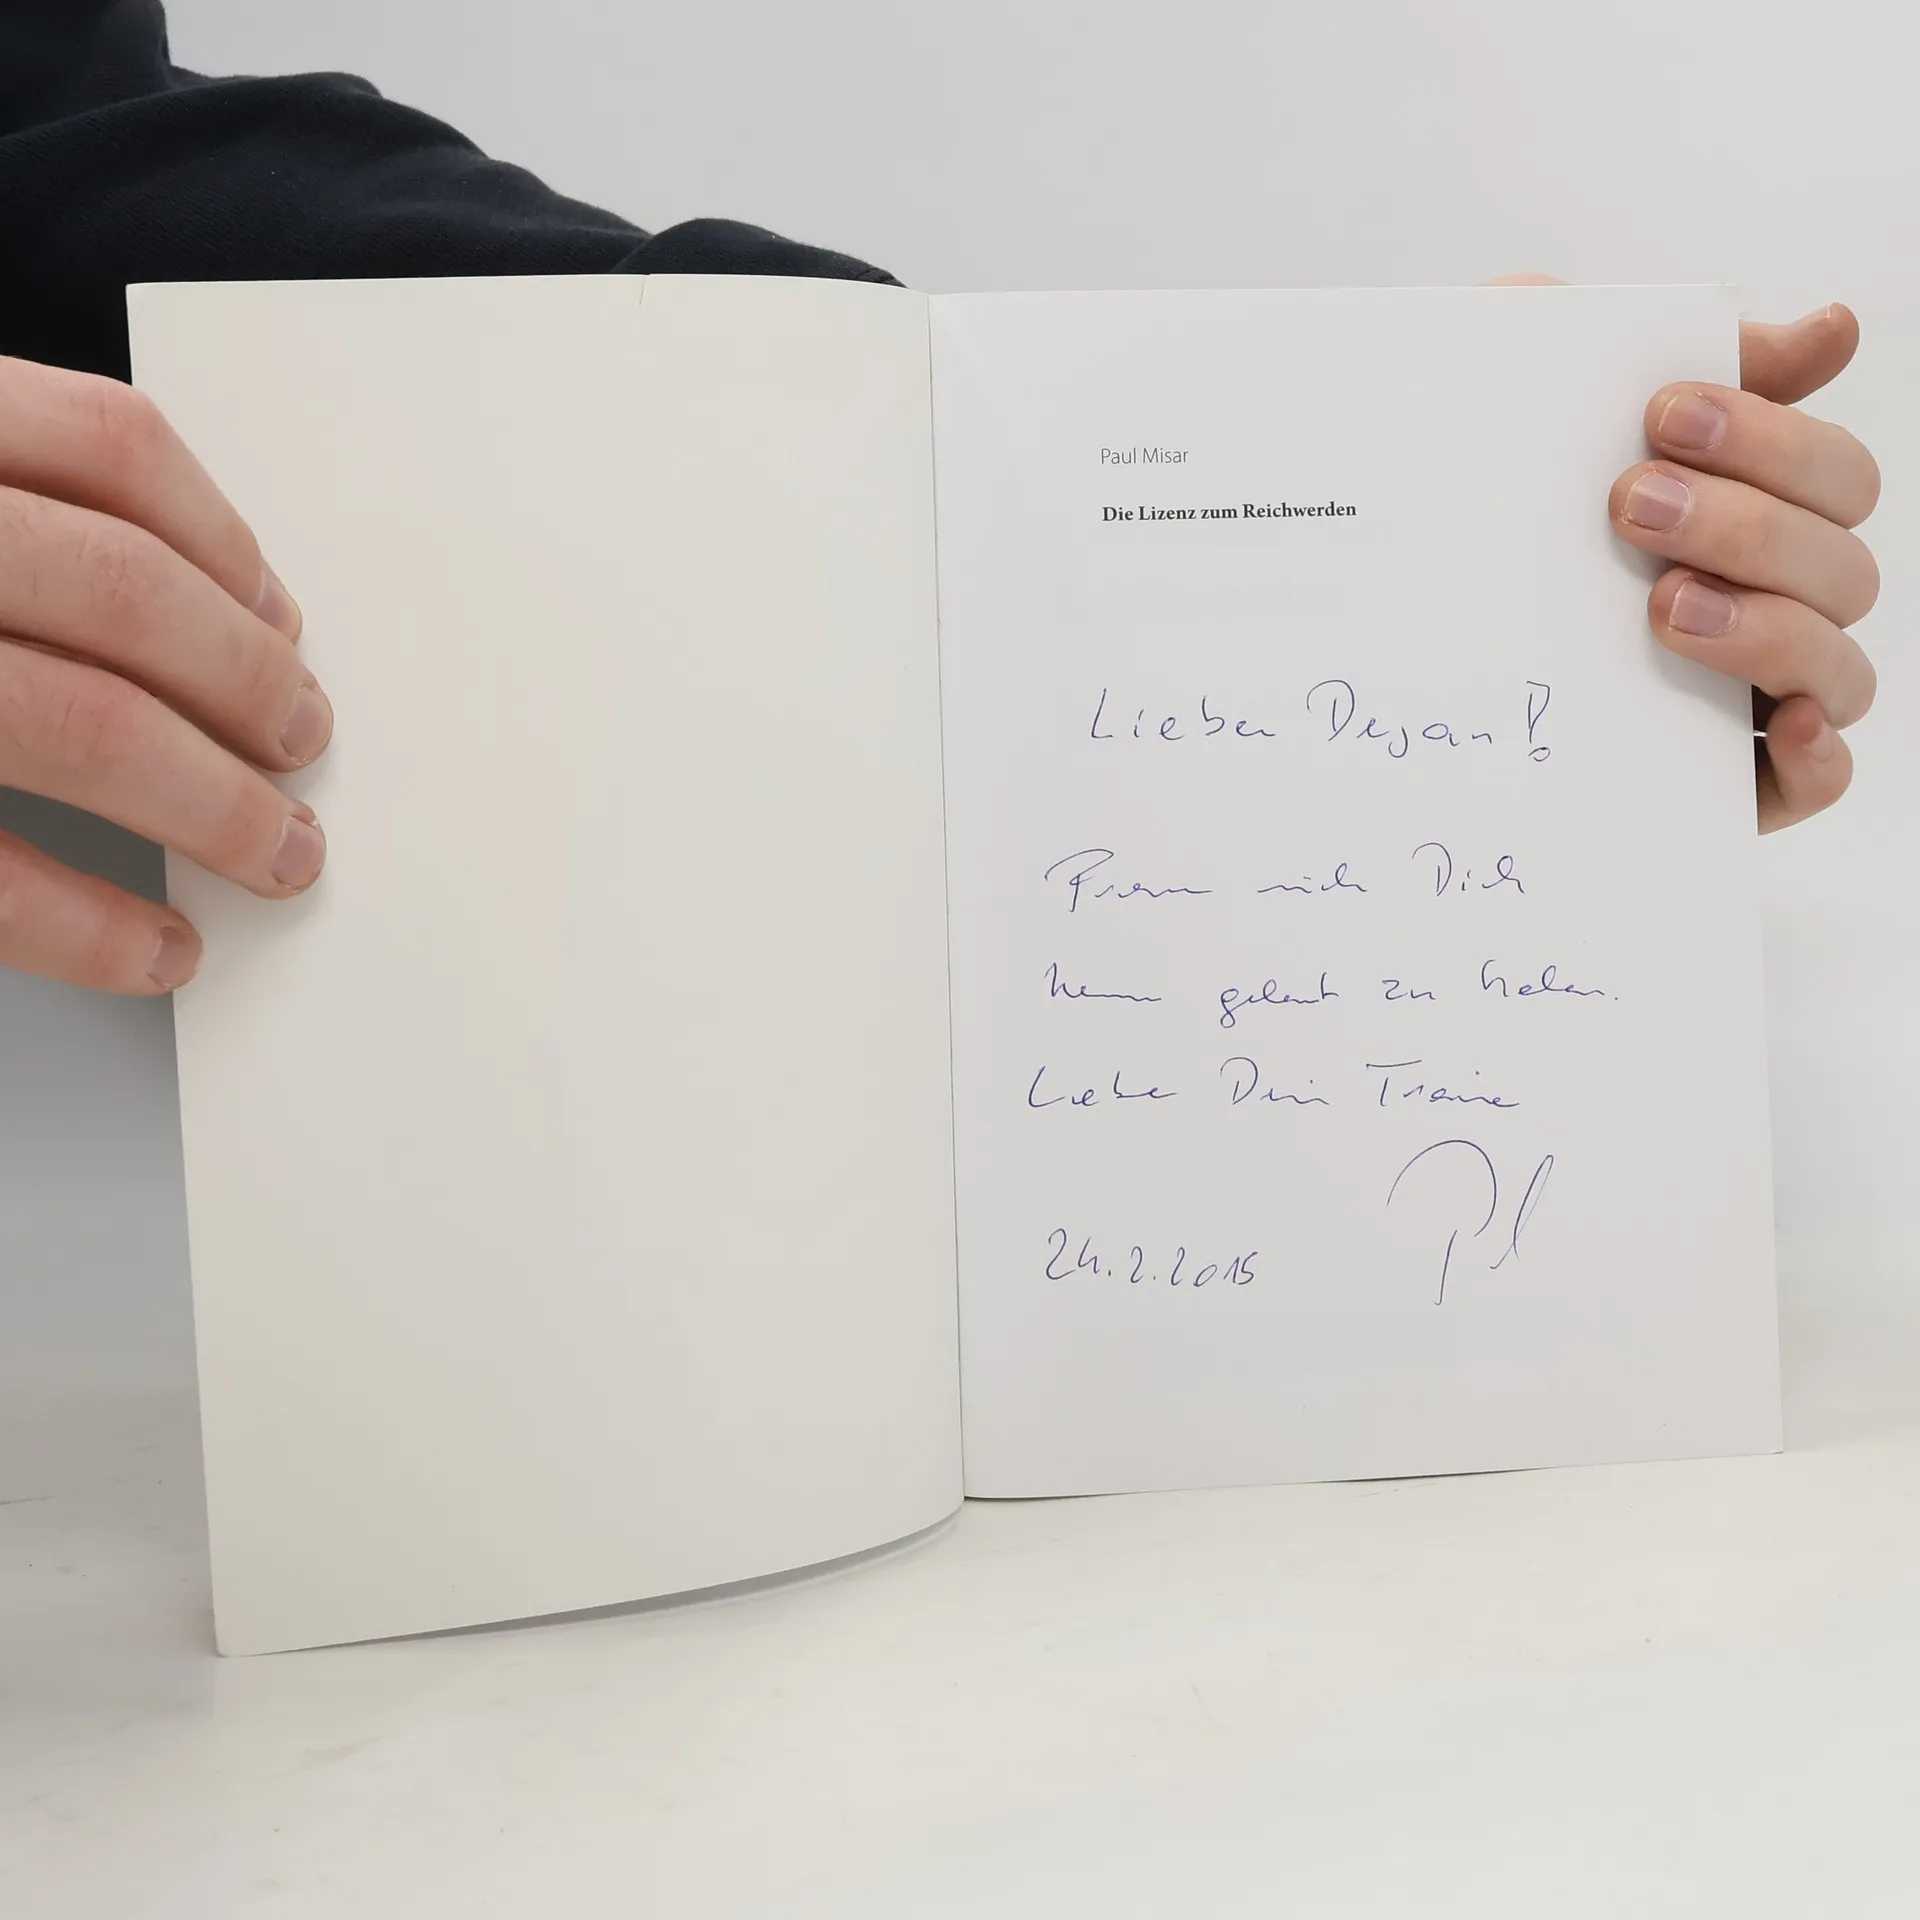 Paul Misar
Die Lizenz zum Reichwerden
Lieber Dejan!
Freue mich Dich
kennen gelernt zu haben.
Lebe Dein Träume
24.2.2015